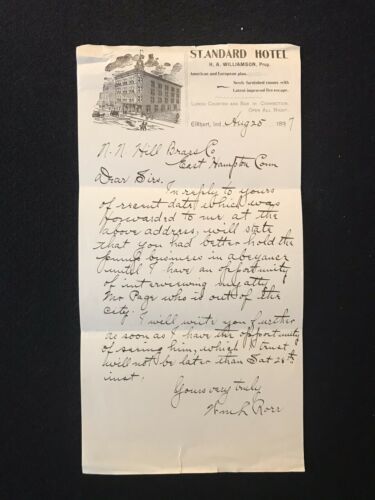 STANDARD HOTEL
H. A. WILLIAMSON, Prop.
American and European plan.
Newly furnished rooms with
Latest improved fire escape.
LUNCH COUNTER AND BAR IN CONNECTION.
OPEN ALL NIGHT.
Elkhart, Ind., Aug 25 1897
N. N. Hill Brass Co
East Hampton Conn
Dear Sirs.
In reply to yours
of recent date, which was
forwarded to me at the
above address, will state
that you had better hold the
business in abeyance
until I have an opportunity
of interviewing
Mr Page who is out of the
city.
I will write you further
as soon as I have the opportunity
of seeing him, which I trust,
will not be later than Sat 28th
inst.
Yours very truly
Wm L Rorr